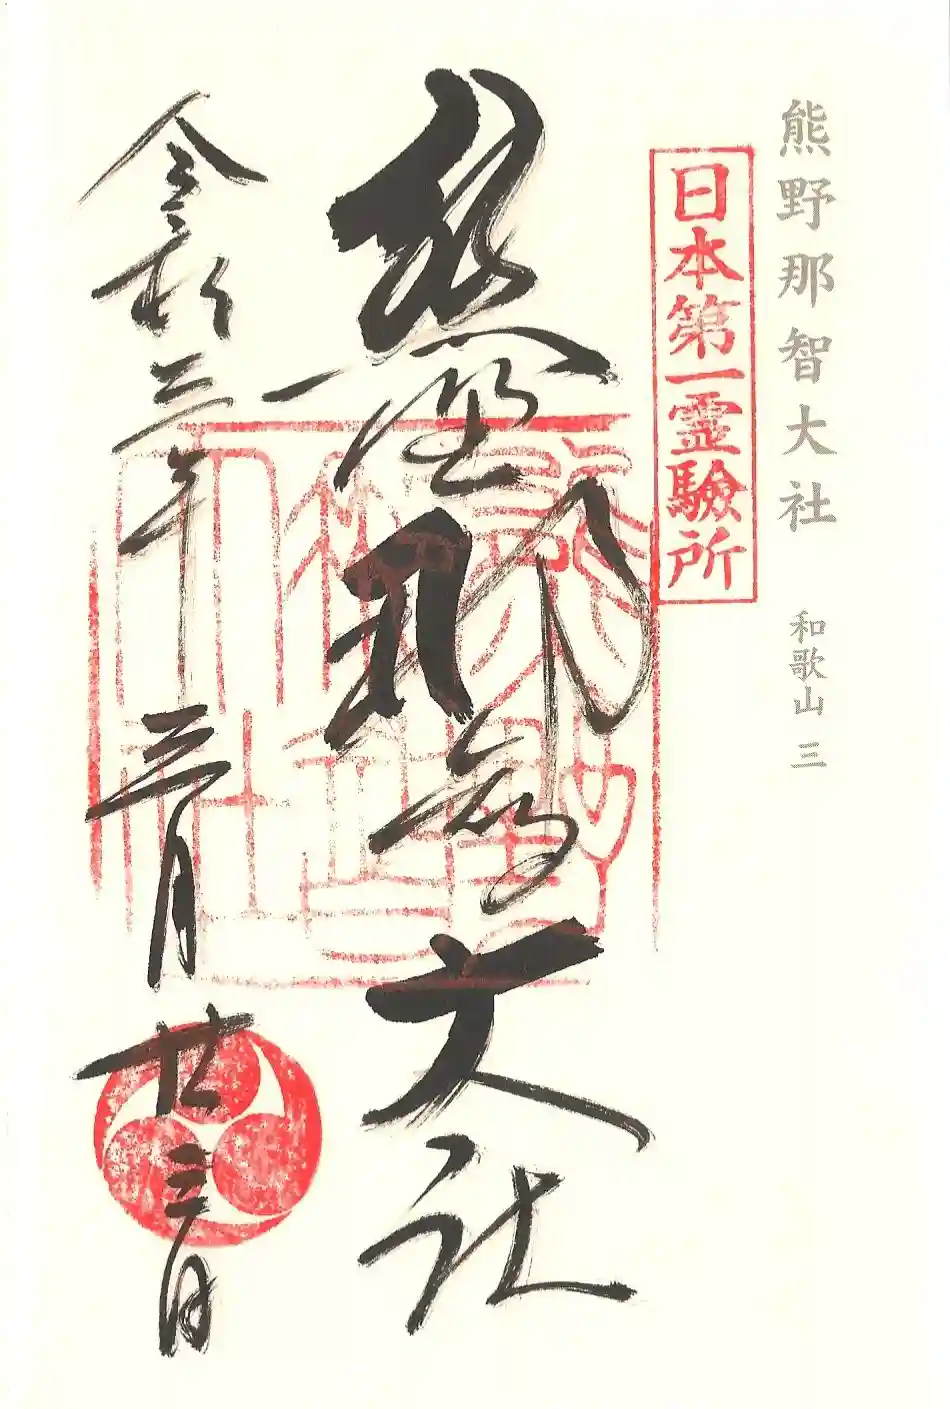 熊野那智大社 和歌山 三
日本第一霊験所
熊野那智大社
令和三年三月廿三日